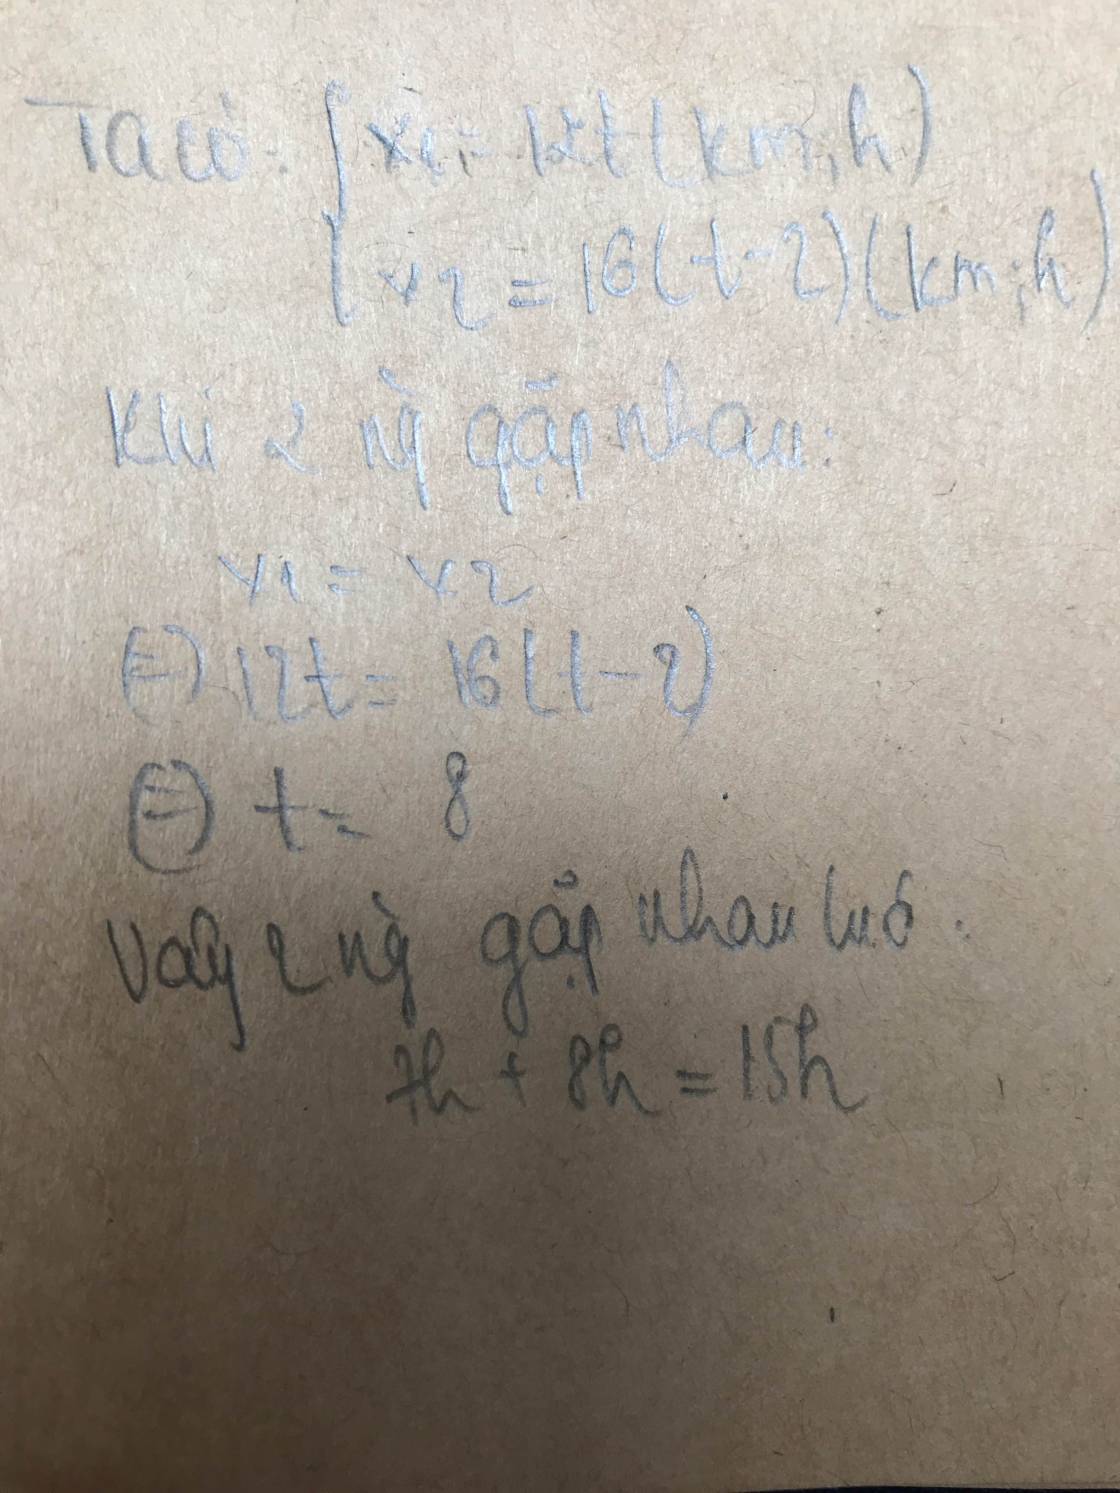 Ta có: { x1 = 12t (km;h)
x2 = 16(t-2) (km;h)
Khi 2 ng` gặp nhau:
x1 = x2
(=) 12t = 16(t-2)
(=) t = 8
Vậy 2 ng` gặp nhau lúc:
7h + 8h = 15h